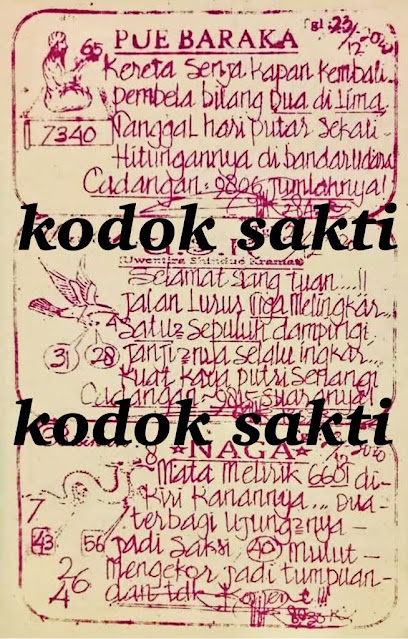 PUE BARAKA
Tgl: 23/12-200
65
Kereta Senja kapan kembali..
pembela bilang Dua di Lima.
7340
Tanggal hari putar sekali-
Hitungannya di bandar udara
Cadangan: 9896 jumlahnya!
kodok sakti
(Uwentira Shindue Kramat)
Selamat siang tuan....!!
Jalan Lurus Tiga Melingkar...
Satu2 Sepuluh dampingi
31 28
Janji2nya selalu ingkar...
Kuat kata putri Serlangi
Cadangan: 9815 suaranya!
kodok sakti
NAGA
8
Mata Melirik 6601 di-
7
Kiri Kanannya... Dua-
terbagi ujung2nya-
43 56
Jadi Saksi (40) Mulut-
26
Mengekor jadi tumpuan-
4
dan tdk